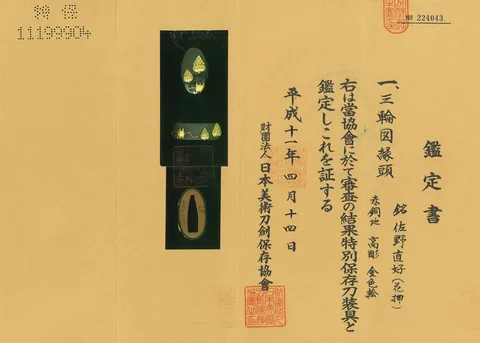 № 224043
特保
11199904
鑑定書
一、三輪図縁頭 銘 佐野直好(花押)
赤銅地 高彫 金色絵
右は當協會に於て審査の結果特別保存刀装具と
鑑定しこれを証する
平成十一年四月十四日
財團法人 日本美術刀劍保存協會